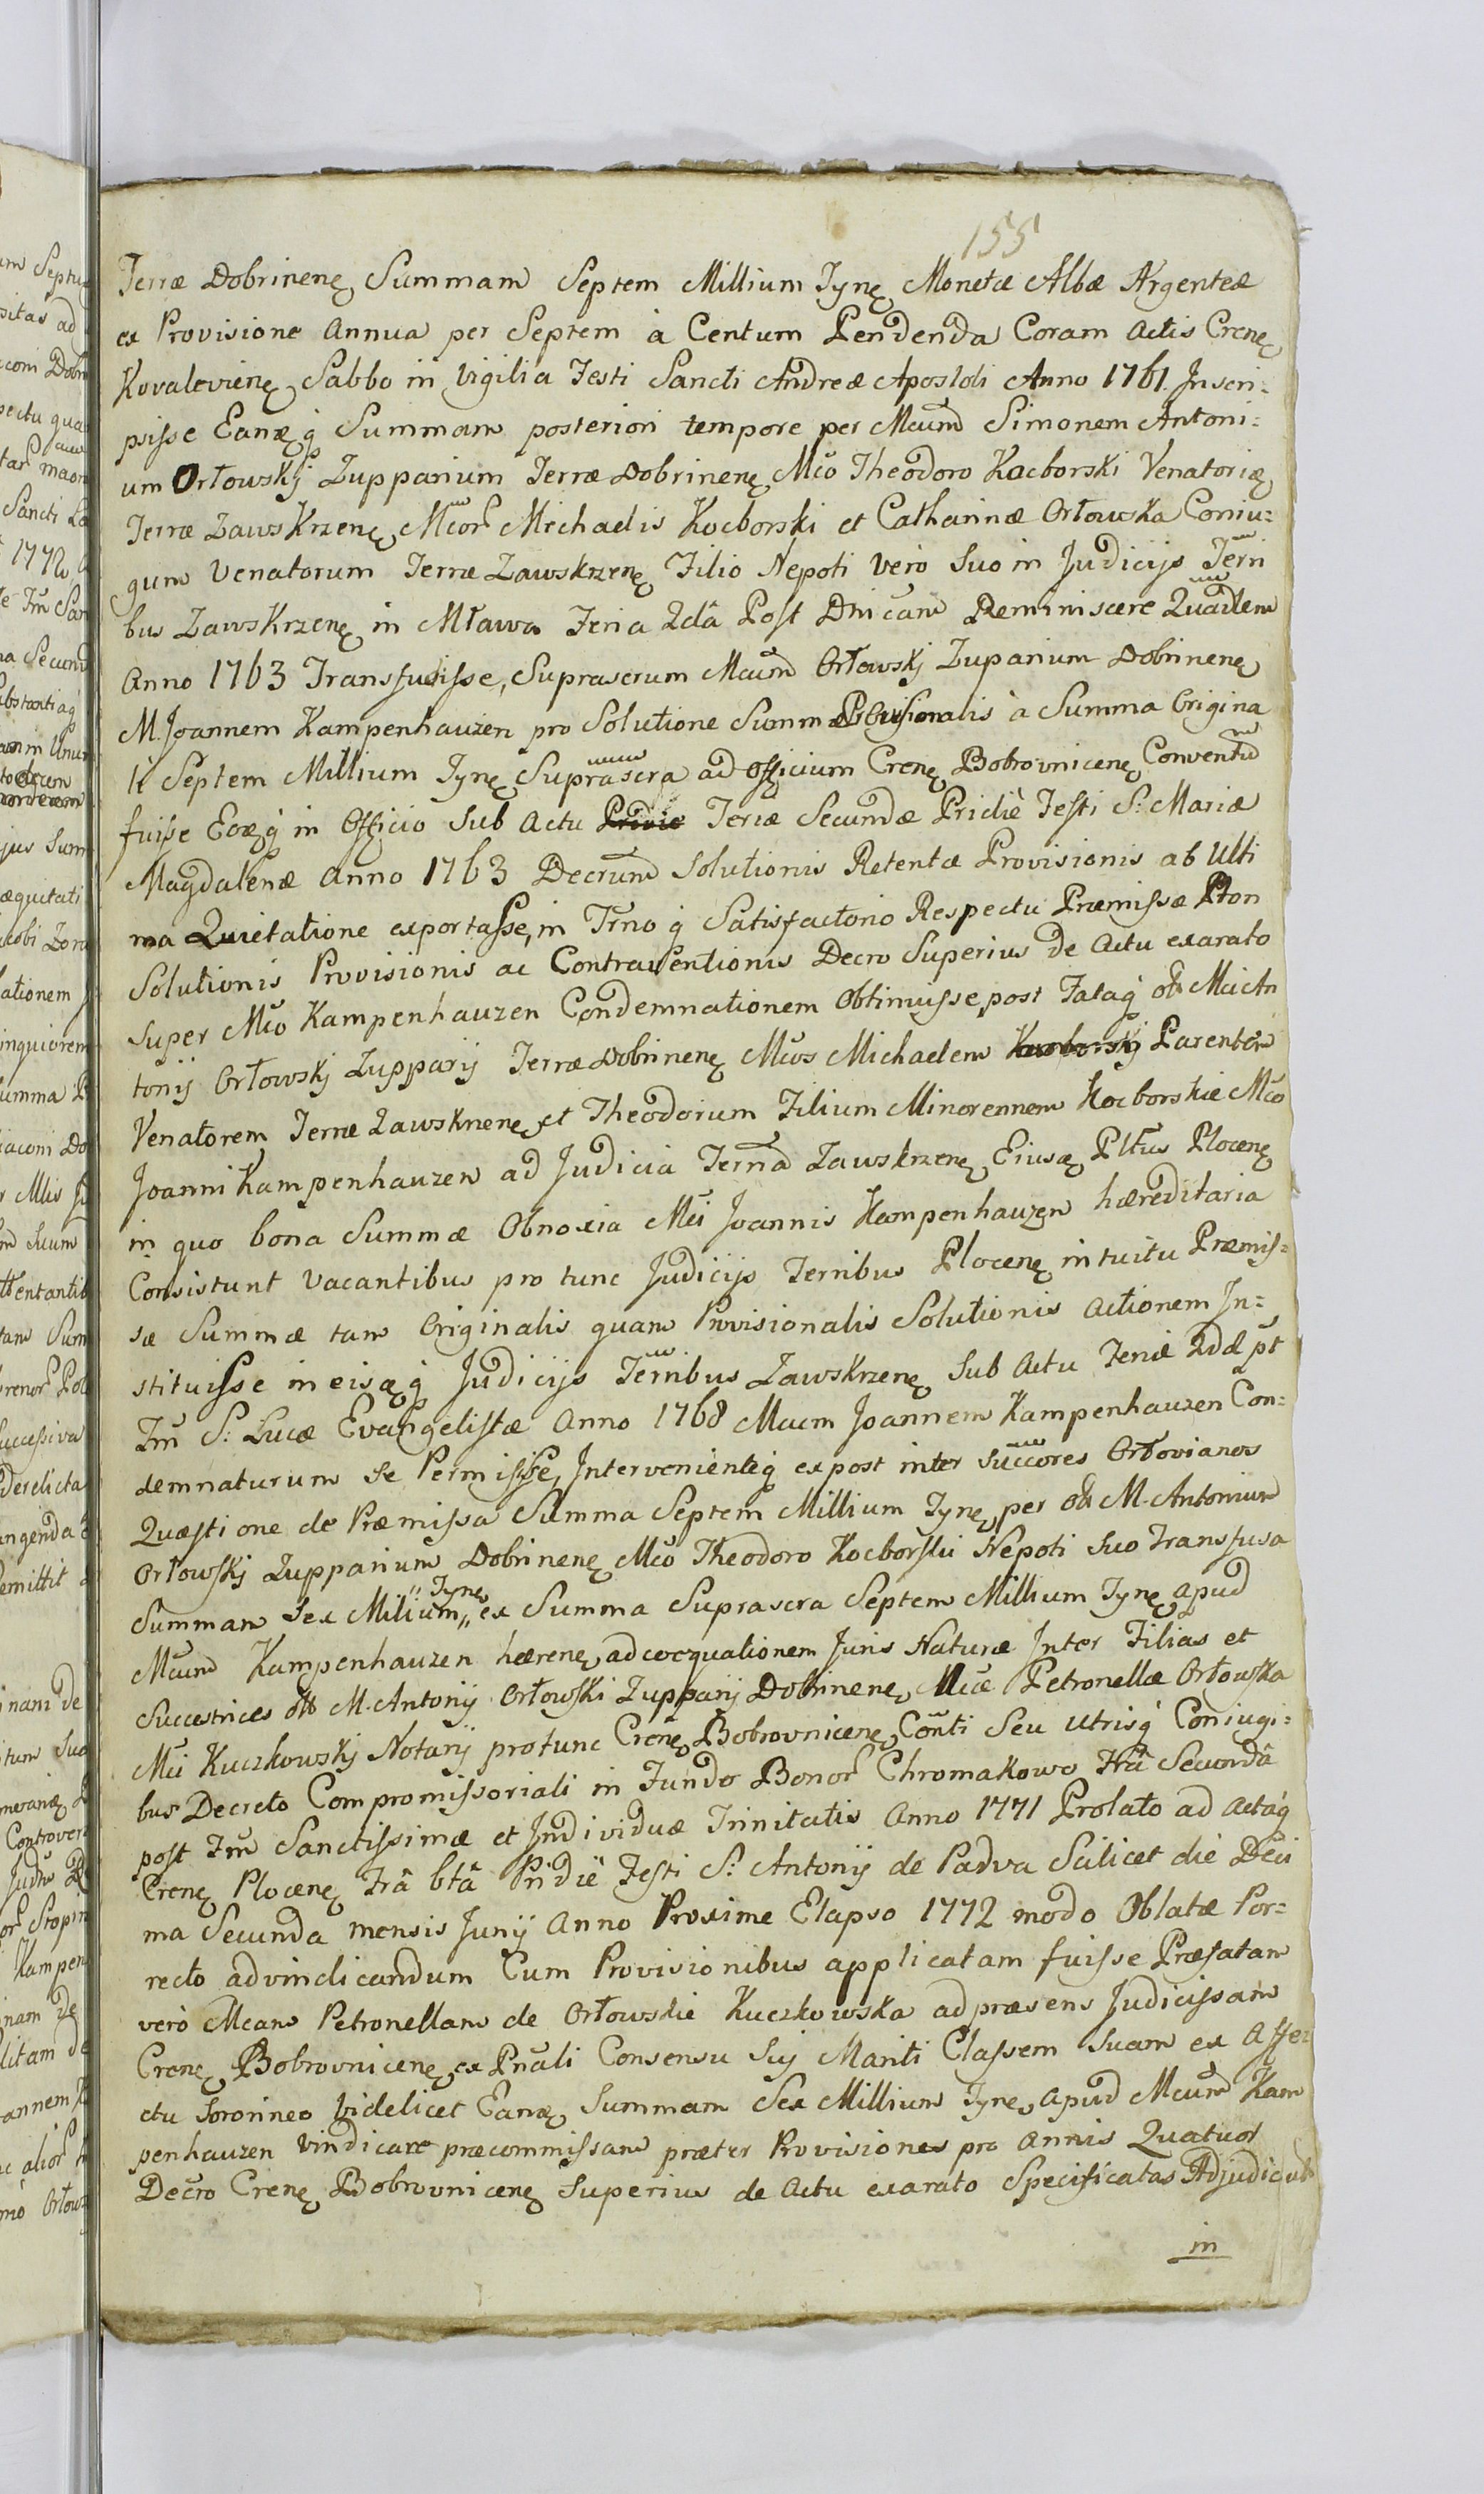 155
Terræ Dobrinenę Summam Septem Millium Tynę Monetæ Albæ Argenteæ
ex Provisione Annua per Septem à Centum Pendenda Coram Actis Crenę
Kovalevienę Sabbo in Vigilia Festi Sancti Andreæ Apostoli Anno 1761. Inscri-
psisse Eamę q̃ Summam posteriori tempore per Mcum̃ Simonem Antoni-
um Orłowskj Zupparium Terræ Dobrinenę Mco Theodoro Kocborski Venatorię
Terræ ZawsKrzenę Mcor̃ Michaelis Kocborski et Catharinæ Orłowska Coniu-
gum Venatorum Terræ Zawskrzenę Filio Nepoti vero Suo in Judicijs Terri
bus ZawsKrzenę in Mława Feria 2dâ Post Dnicam Reminiscere Quadlem
Anno 1763 Transfudisse, Suprascrum Mcum̃ Orłowskj Zuparium Dobrinenę
M. Joannem Kampenhauzen pro Solutione Summæ Provisionalis à Summa Origina
li Septem Millium Tynę Suprascra ad officium Crenę Bobrovnicenę Conventũ
fuisse Eoę q̃ in Officio Sub Actu Feriæ Secundæ Pridiè Festi S: Mariæ
Magdalenæ Anno 1763 Decrum̃ Solutionis Retentæ Provisionis ab Ulti
ma Quietatione exportasse, in Trno q̃ Satisfactorio Respectu Præmissæ Pton
Solutionis Provisionis ac Contraventionis Decro Superius de Actu exarato
Super Mco Kampenhauzen Condemnationem Obtinuisse, post Fataq̃ olt Mci An
tonij Orłowskj Zupparij Terræ Dobrinenę Mcos Michaelem Parentem
Venatorem Terræ Zawskrzenę et Theodorum Filium Minorennem Kocborskie Mco
Joanni Kampenhauzen ad Judicia Terria Zawskrzenę Eiusę Pltus Plocenę
in quo bona Summæ Obnoxia Mci Joannis Kampenhauzen hæreditaria
Consistunt vacantibus pro tunc Judicijs Terribus Plocenę intuitu Præmis-
sæ Summæ tam Originalis quam Provisionalis Solutionis Actionem In-
stituisse in eisę q̃ Judicijs Terribus Zawskrzenę Sub Actu Feriæ 2dæ pt
Fm̃ S: Lucæ Evangelistæ Anno 1768 Mcum Joannem Kampenhauzen Con-
demnaturum se Permisisse, Intervenienteq̃ expost inter Succores Orłovianos
Quæstione de Præmissa Summa Septem Millium Tynę per olt M. Antonium
Orłowskj Zupparium Dobrinenę Mco Theodoro Kocborski Nepoti Suo Transfusa
Summam Sex Millium Tynę ex Summa Suprascra Septem Millium Tynę apud
Mcum̃ Kampenhauzen hærenę ad coæquationem Juris Naturæ Inter Filias et
Successtrices olt M. Antonij Orłowski Zupparij Dobrinenę Mcæ Petronellæ Orłowska
Mci Kuczkowskj Notarij protunc Crenę Bobrovnicenę Conti Seu Utrisq̃ Coniugi-
bus Decreto Compromissoriali in Fundo Bonor̃ Chromakowo Frâ Secundâ
post Fm̃ Sanctissimæ et Individuæ Trinitatis Anno 1771 Prolato ad Actaq̃
Crenę Plocenę Frâ 6tâ Pridiè Festi S: Antonij de Padva Scilicet diè Deci
ma Secunda mensis Junij Anno Proxime Elapso 1772 modo Oblatæ Por-
recto advindicandum Cum Provisionibus applicatam fuisse Præfatam
verò Mcam Petronellam de Orłowskie Kuczkowska ad præsens Judicissam
Crenę Bobrovnicenę ex Pn̄ali Consensu Sui Mariti Classem Suam ex Affe-
ctu Sororineo Videlicet Eamę Summam Sex Millium Tynę apud Mcum̃ Kam
penhauzen Vindicare præcommissam præter Provisiones pro Annis Quatuor
Decro Crenę Bobrovnicenę Superius de Actu exarato Specificatas
in